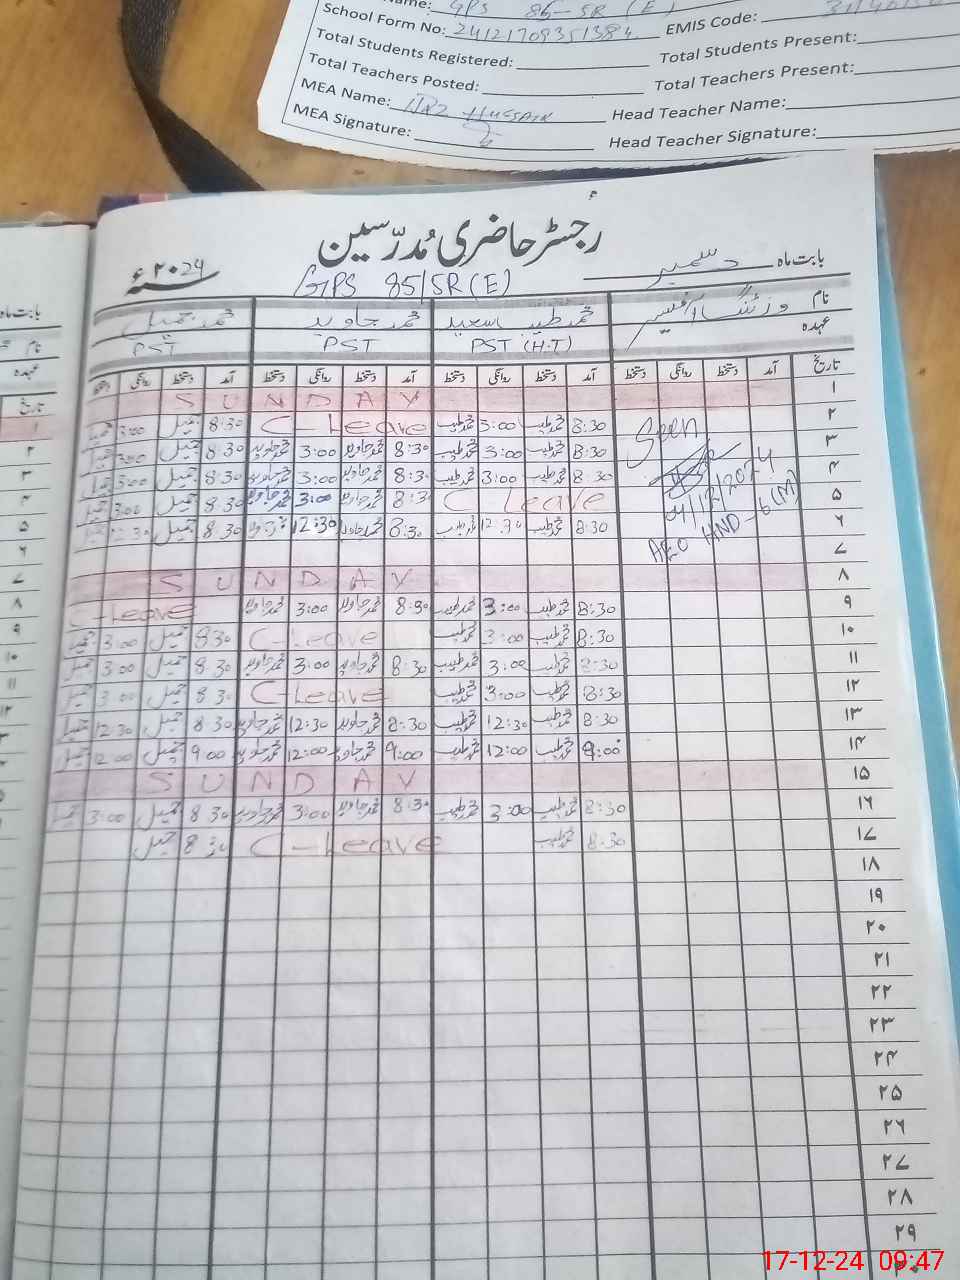 Name: GPS 85-5R (E)
School Form No: 24121708351384 EMIS Code:
Total Students Registered: Total Students Present:
Total Teachers Posted: Total Teachers Present:
MEA Name: Hussain Head Teacher Name:
MEA Signature: Head Teacher Signature:
رجسٹر حاضری مُدرّسین
بابت ماہ دسمبر ۲۰24ء
GPS 85/5R (E)
نام وزٹنگ آفیسر محمد طیب سعید محمد جاوید محمد جمیل
عہدہ PST (H.T) PST PST
تاریخ آمد دستخط روانگی دستخط آمد دستخط روانگی دستخط آمد دستخط روانگی دستخط آمد دستخط روانگی دستخط
۱ SUNDAY
۲ 8:30 محمد طیب 3:00 محمد طیب C-Leave 8:30 جمیل 3:00 جمیل
۳ 8:30 محمد طیب 3:00 محمد طیب 8:30 محمد جاوید 3:00 محمد جاوید 8:30 جمیل 3:00 جمیل
۴ 8:30 محمد طیب 3:00 محمد طیب 8:30 محمد جاوید 3:00 محمد جاوید 8:30 جمیل 3:00 جمیل
۵ C Leave 8:30 محمد جاوید 3:00 محمد جاوید 8:30 جمیل 3:00 جمیل
۶ 8:30 محمد طیب 12:30 محمد طیب 8:30 محمد جاوید 12:30 محمد جاوید 8:30 جمیل 12:30 جمیل
۷
Seen
04/12/2024
AEO HND-6(M)
۸ SUNDAY
۹ 8:30 محمد طیب 3:00 محمد طیب 8:30 محمد جاوید 3:00 محمد جاوید C-Leave
۱۰ 8:30 محمد طیب 3:00 محمد طیب C-Leave 8:30 جمیل 3:00 جمیل
۱۱ 8:30 محمد طیب 3:00 محمد طیب 8:30 محمد جاوید 3:00 محمد جاوید 8:30 جمیل 3:00 جمیل
۱۲ 8:30 محمد طیب 3:00 محمد طیب C-Leave 8:30 جمیل 3:00 جمیل
۱۳ 8:30 محمد طیب 12:30 محمد طیب 8:30 محمد جاوید 12:30 محمد جاوید 8:30 جمیل 12:30 جمیل
۱۴ 9:00 محمد طیب 12:00 محمد طیب 9:00 محمد جاوید 12:00 محمد جاوید 9:00 جمیل 12:00 جمیل
۱۵ SUNDAY
۱۶ 8:30 محمد طیب 3:00 محمد طیب 8:30 محمد جاوید 3:00 محمد جاوید 8:30 جمیل 3:00 جمیل
۱۷ 8:30 محمد طیب C-Leave 8:30 جمیل
۱۸
۱۹
۲۰
۲۱
۲۲
۲۳
۲۴
۲۵
۲۶
۲۷
۲۸
۲۹
17-12-24 09:47